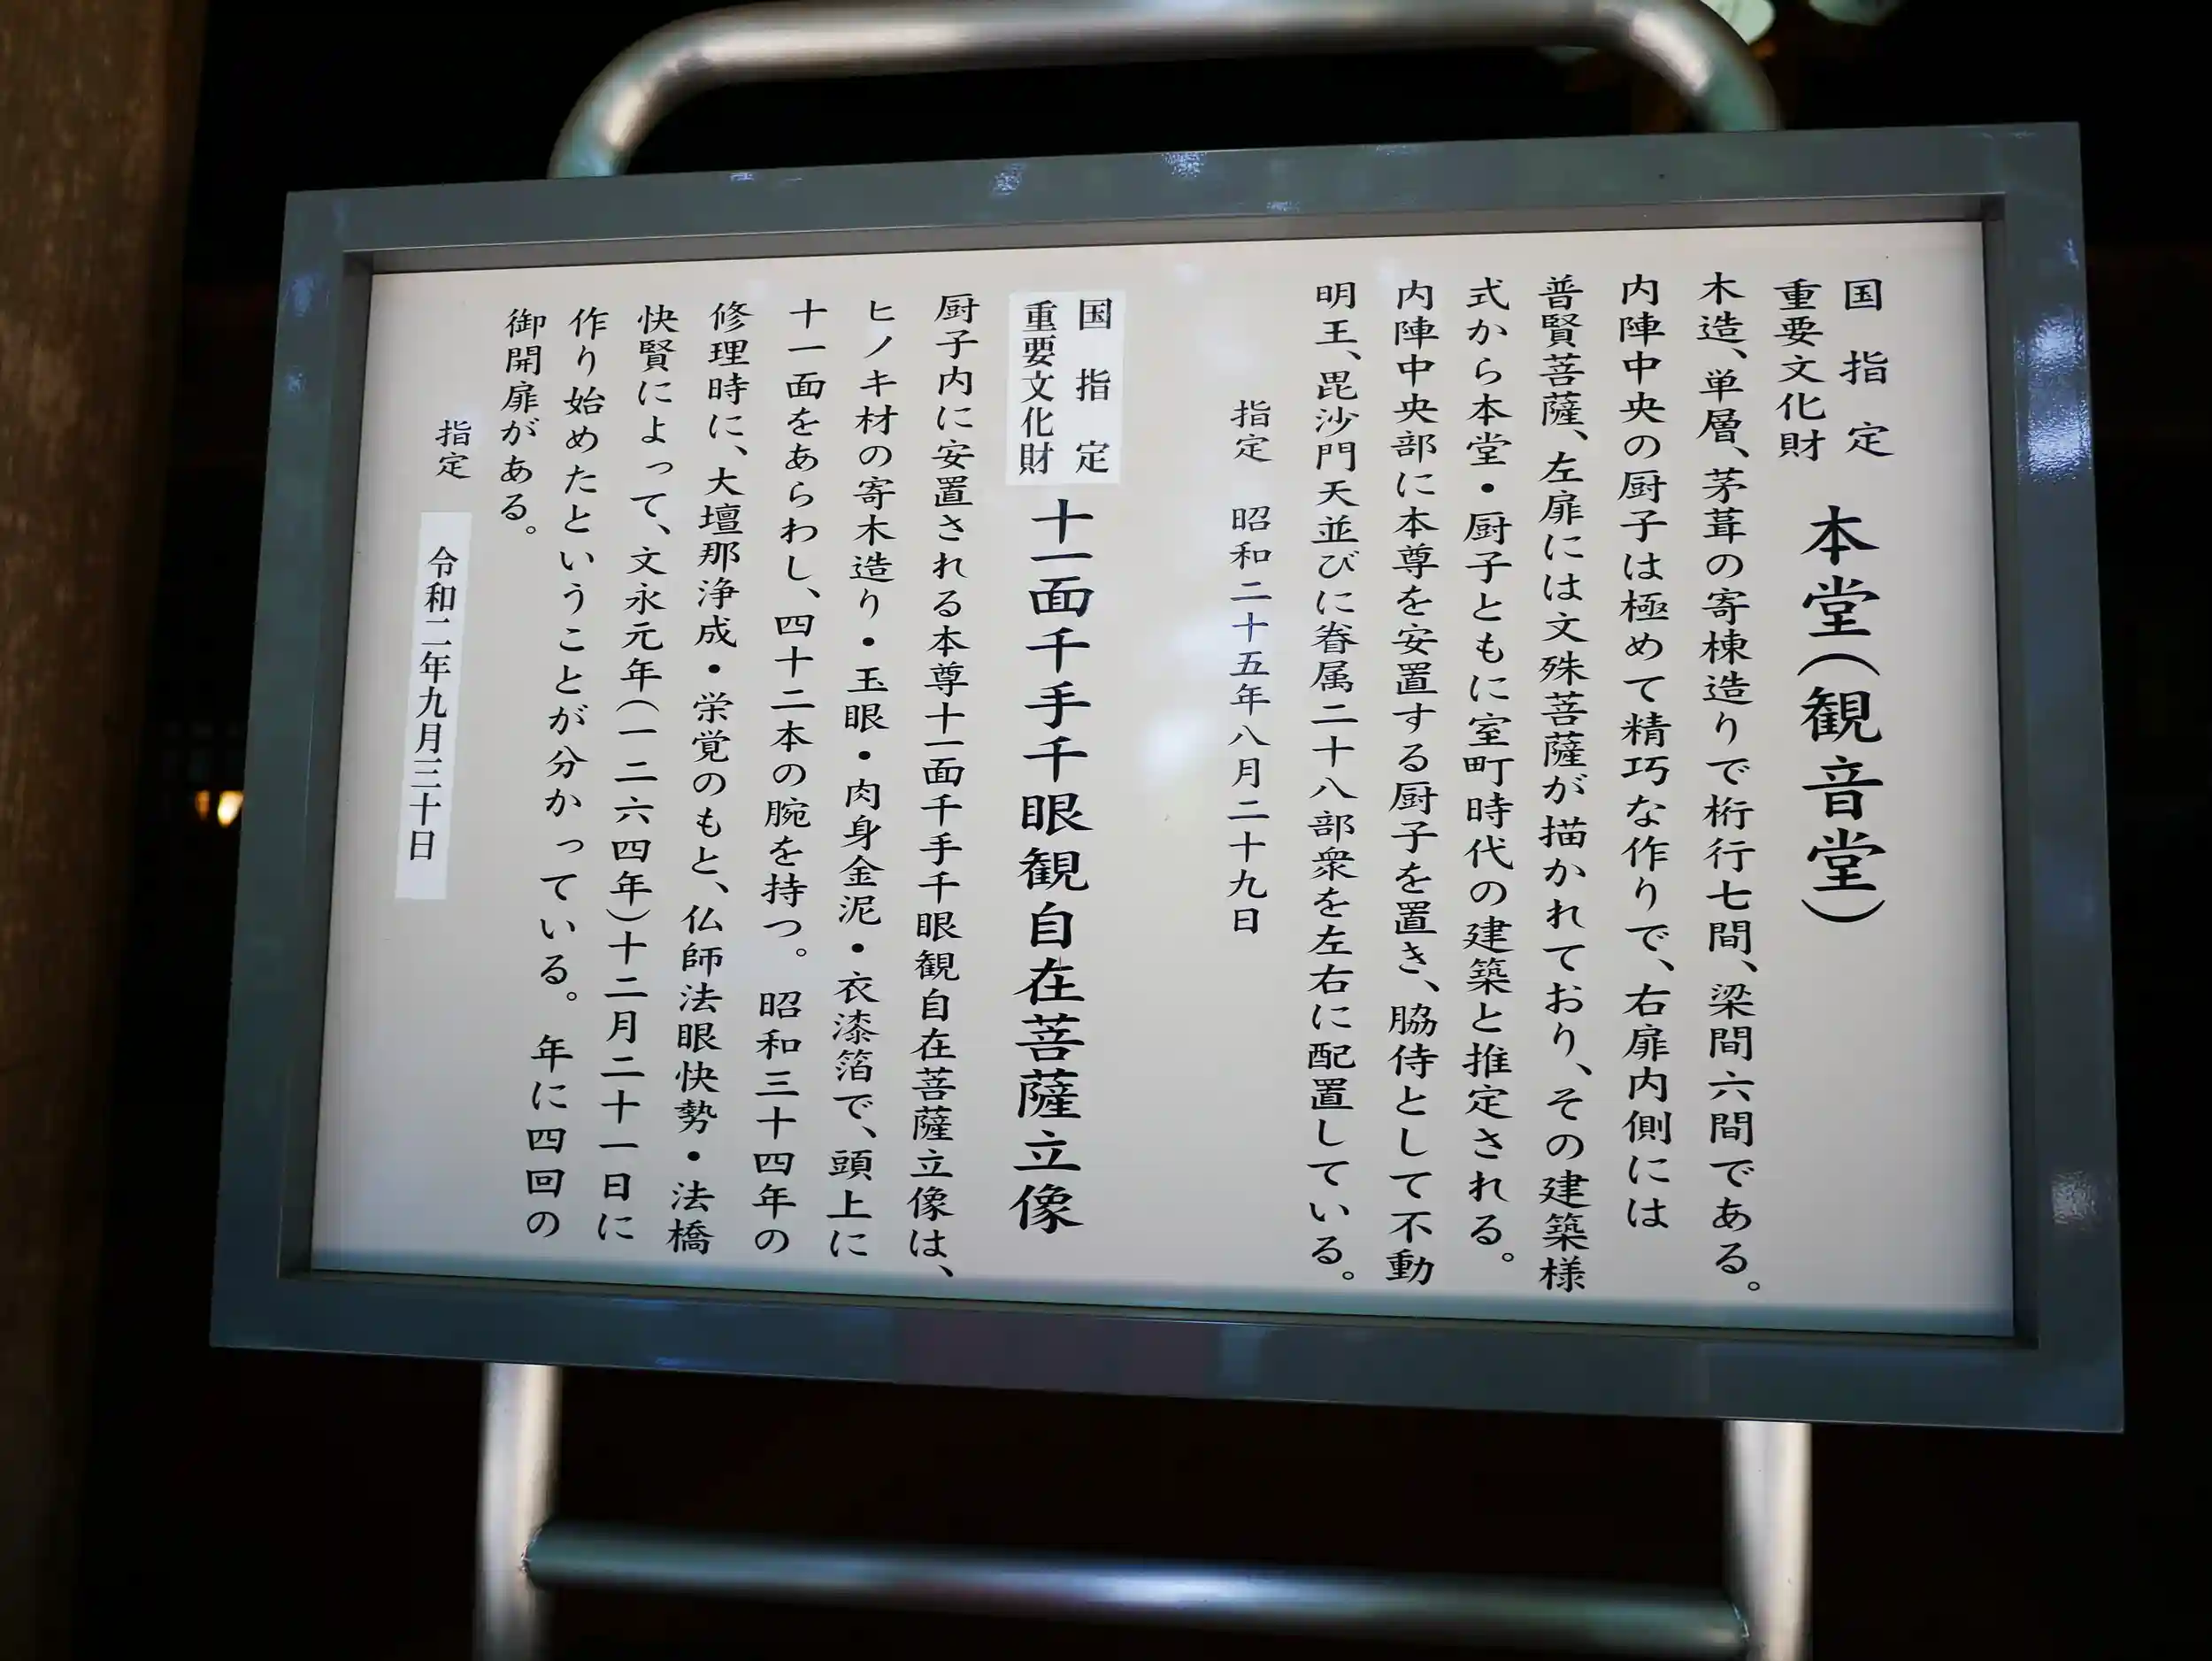 国指定
重要文化財
本堂（観音堂）
木造、単層、茅葺の寄棟造りで桁行七間、梁間六間である。
内陣中央の厨子は極めて精巧な作りで、右扉内側には
普賢菩薩、左扉には文殊菩薩が描かれており、その建築様
式から本堂・厨子ともに室町時代の建築と推定される。
内陣中央部に本尊を安置する厨子を置き、脇侍として不動
明王、毘沙門天並びに眷属二十八部衆を左右に配置している。
指定　昭和二十五年八月二十九日
国指定
重要文化財
十一面千手千眼観自在菩薩立像
厨子内に安置される本尊十一面千手千眼観自在菩薩立像は、
ヒノキ材の寄木造り・玉眼・肉身金泥・衣漆箔で、頭上に
十一面をあらわし、四十二本の腕を持つ。昭和三十四年の
修理時に、大壇那浄成・栄覚のもと、仏師法眼快勢・法橋
快賢によって、文永元年（一二六四年）十二月二十一日に
作り始めたということが分かっている。年に四回の
御開扉がある。
指定　令和二年九月三十日